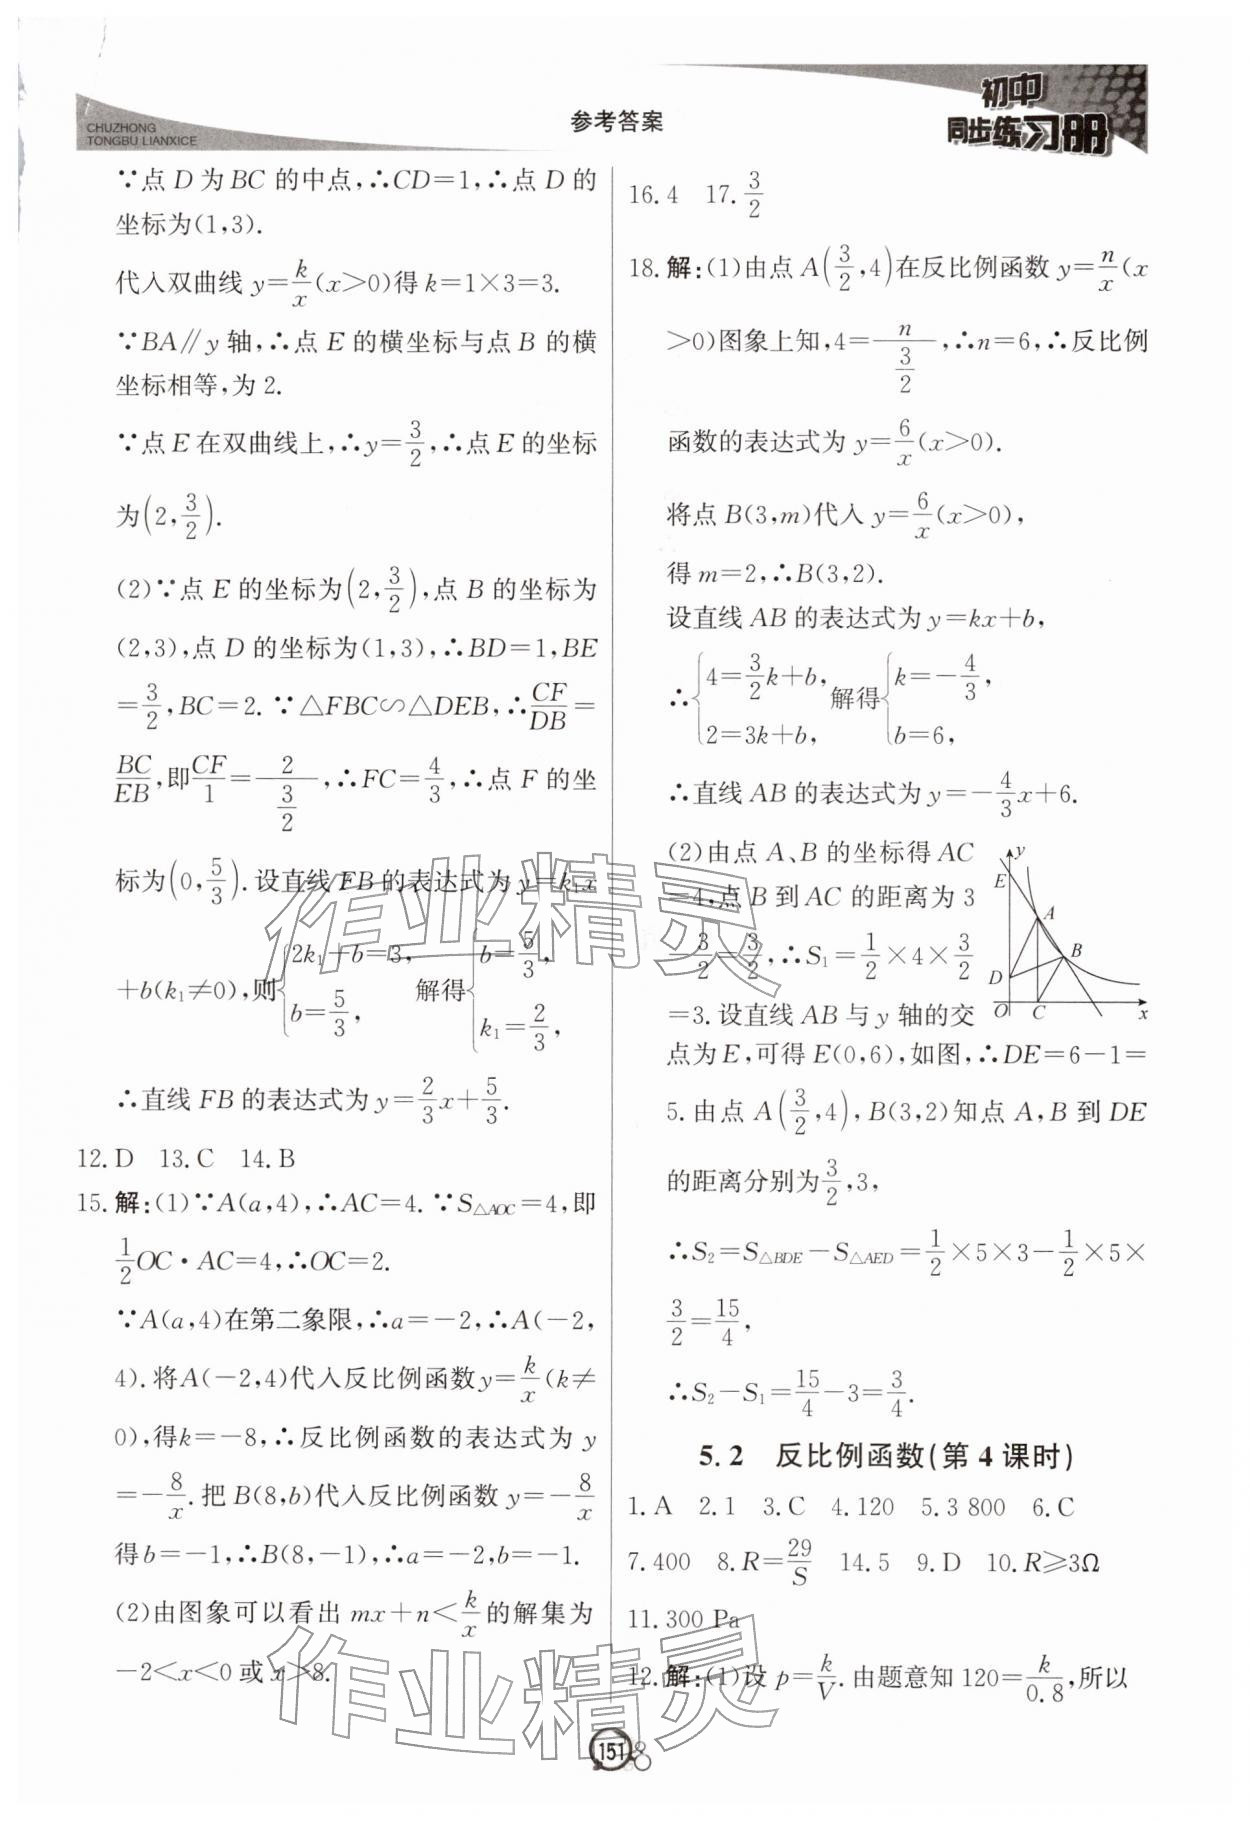 CHUZHONG
TONGBU LIANXICE
参考答案
初中
同步练习册
∵点 D 为 BC 的中点,∴CD=1,∴点 D 的
坐标为(1,3).
代入双曲线 y=k/x(x>0)得 k=1×3=3.
∵BA∥y 轴,∴点 E 的横坐标与点 B 的横
坐标相等,为 2.
∵点 E 在双曲线上,∴y=3/2,∴点 E 的坐标
为(2,3/2).
(2)∵点 E 的坐标为(2,3/2),点 B 的坐标为
(2,3),点 D 的坐标为(1,3),∴BD=1,BE
=3/2,BC=2.∵△FBC∽△DEB,∴CF/DB=
BC/EB,即CF/1=2/(3/2),∴FC=4/3,∴点 F 的坐
标为(0,5/3).设直线 FB 的表达式为 y=k₁x
+b(k₁≠0),则{2k₁+b=3, b=5/3, 解得{b=5/3, k₁=2/3,
∴直线 FB 的表达式为 y=2/3x+5/3.
12.D 13.C 14.B
15.解:(1)∵A(a,4),∴AC=4.∵S△AOC=4,即
1/2OC·AC=4,∴OC=2.
∵A(a,4)在第二象限,∴a=-2,∴A(-2,
4).将A(-2,4)代入反比例函数y=k/x(k≠
0),得k=-8,∴反比例函数的表达式为 y
=-8/x.把 B(8,b)代入反比例函数 y=-8/x
得b=-1,∴B(8,-1),∴a=-2,b=-1.
(2)由图象可以看出 mx+n<k/x的解集为
-2<x<0 或 x>8.
16.4 17.3/2
18.解:(1)由点 A(3/2,4)在反比例函数 y=n/x(x
>0)图象上知,4=n/(3/2),∴n=6,∴反比例
函数的表达式为 y=6/x(x>0).
将点 B(3,m)代入 y=6/x(x>0),
得 m=2,∴B(3,2).
设直线 AB 的表达式为 y=kx+b,
∴{4=3/2k+b, 2=3k+b, 解得{k=-4/3, b=6,
∴直线 AB 的表达式为 y=-4/3x+6.
(2)由点 A、B 的坐标得 AC
=4,点 B 到 AC 的距离为 3
-3/2=3/2,∴S₁=1/2×4×3/2
=3.设直线 AB 与 y 轴的交
点为 E,可得 E(0,6),如图,∴DE=6-1=
5.由点 A(3/2,4),B(3,2)知点 A,B 到 DE
的距离分别为3/2,3,
∴S₂=S△BDE-S△AED=1/2×5×3-1/2×5×
3/2=15/4,
∴S₂-S₁=15/4-3=3/4.
y
E
A
B
D
O
C
x
5.2 反比例函数(第 4 课时)
1.A 2.1 3.C 4.120 5.3 800 6.C
7.400 8.R=29/S 14.5 9.D 10.R≥3Ω
11.300 Pa
12.解:(1)设 p=k/V.由题意知 120=k/0.8,所以
作业精灵
作业精灵
151